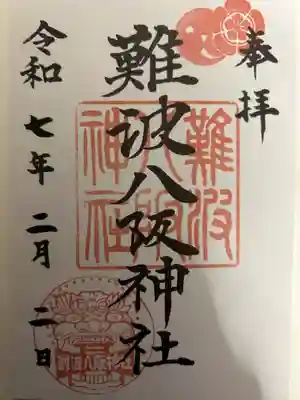 奉拝
難波八阪神社
難波
八阪
神社
令和七年二月二日